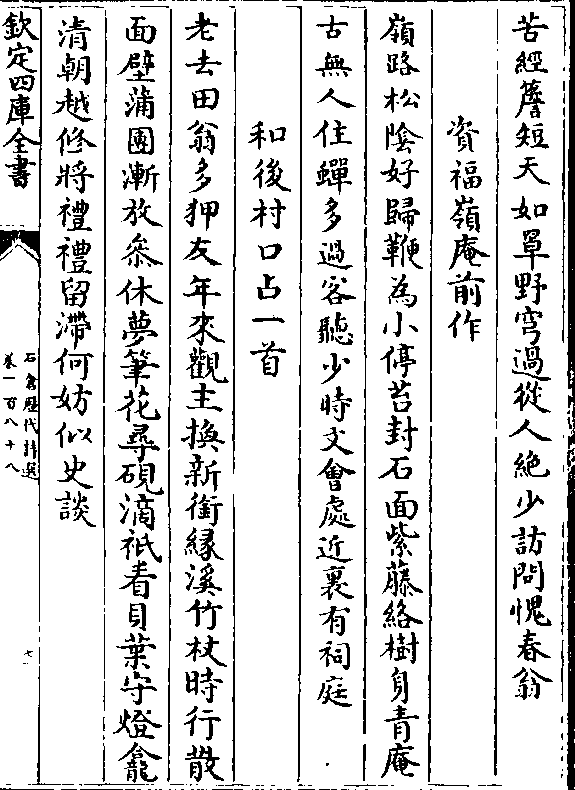 苦經簷短天如罩野穹過從人絶少訪問愧春翁
資福嶺庵前作
嶺路松陰好歸鞭為小停苔封石面紫藤絡樹身青庵
古無人住蟬多過客聽少時文會處近裏有祠庭
和後村口占一首
老去田翁多狎友年來觀主換新銜緣溪竹杖時行散
面壁蒲團漸放叅休夢筆花尋硯滴祇看貝葉守燈龕
清朝越修將禮禮留滯何妨似史談
欽定四庫全書
石倉歷代詩選
卷一百八十八
七